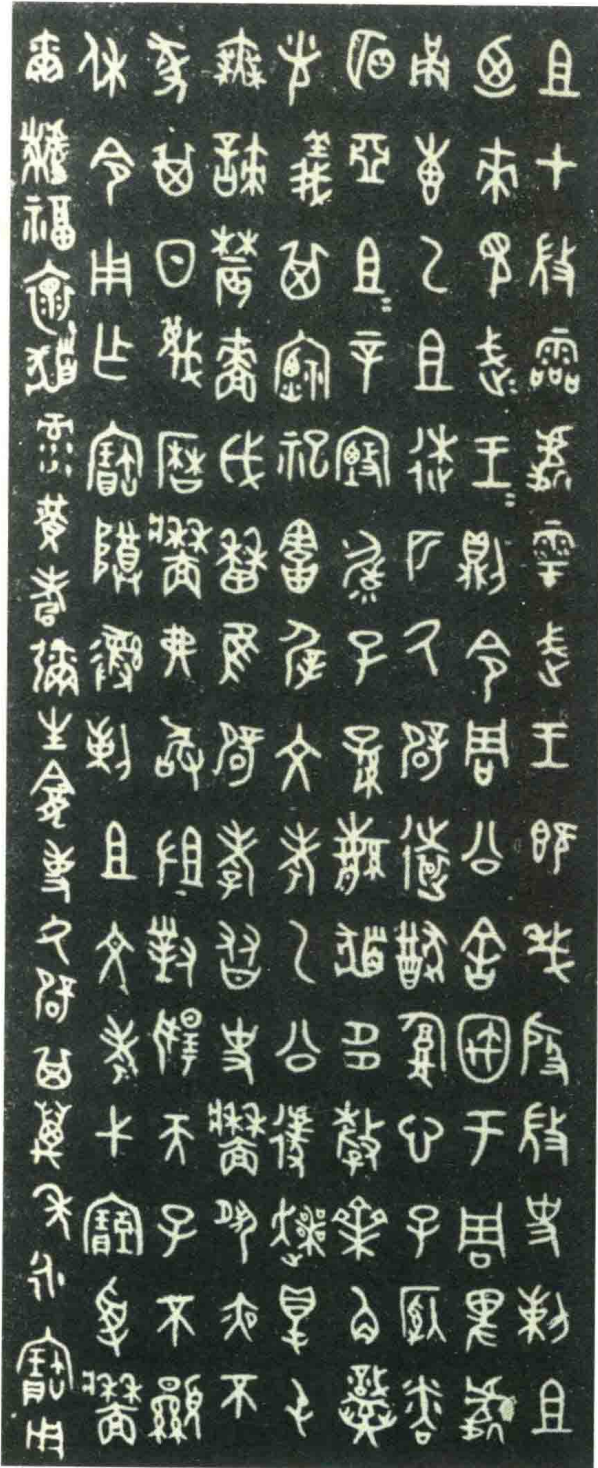 且才𢼸霝處雩武王既𢦏殷𢼸史剌且
廼來見武=王=則令周公舍㝢于周卑處
甬叀乙且逨匹氒辟遠猷腹心子㕋
粦明亞且=辛𡫬毓子孫𣫍多孷角
光義其祀屖文考乙公遽爽得屯
無諫農嗇戉𤯍隹辟孝友史墻夙夜不
彖其日蔑曆墻弗敢沮對揚天子不顯
休令用乍寶尊彝剌且文考弋受墻
爾福褱录黃耇彌生龕事氒辟其萬年永寶用